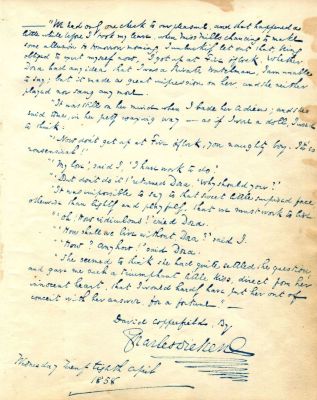 —"We had only one check to our pleasure, and that happened a
little while before I took my leave, when Miss Mills chancing to make
some allusion to tomorrow morning, I unluckily let out that, being
obliged to exert myself now, I got up at five o'clock. Whether
Dora had any idea that I was a Private Watchman, I am unable
to say; but it made a great impression on her, and she neither
played nor sang any more.
"It was still on her mind when I bade her adieu; and she
said to me, in her pretty coaxing way — as if I were a doll, I used
to think:
"'Now don't get up at five o'clock, you naughty boy. It's so
nonsensical!'
"'My love,' said I, 'I have work to do.'
"'But don't do it!' returned Dora. 'Why should you?'
"It was impossible to say to that sweet little surprised face
otherwise than lightly and playfully, that we must work to live.
"'Oh! How ridiculous!' cried Dora.
"'How shall we live without, Dora?' said I.
"'How? Any how!' said Dora.
"She seemed to think she had quite settled the question,
and gave me such a triumphant little kiss, direct from her
innocent heart, that I would hardly have put her out of
conceit with her answer, for a fortune" —
David Copperfield. By
Charles Dickens
Wednesday Twenty Eighth April
1858